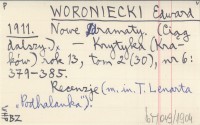 WORONIECKI Edward
1911. Nowe dramaty. (Ciąg
dalszy). — Krytyka (Kra-
ków) rok 13, tom 2 (30), nr 6:
379-385.
Recenzje (m.in. T. Lenarta
„Podhalanka").
BZ